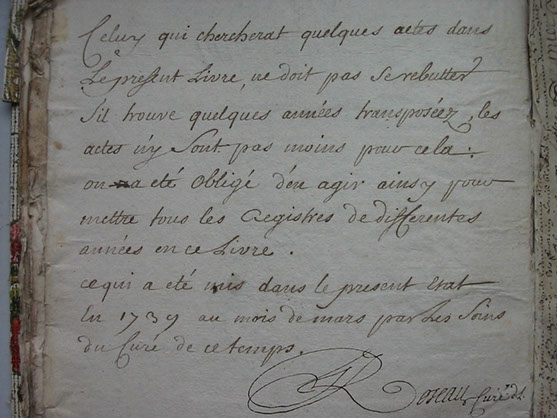 Celuy qui chercherat quelques actes dans
Le present Livre, ne doit pas se rebutter
S'il trouve quelques années transposéez, les
actes n'y Sont pas moins pour cela :
on a été obligé d'en agir ainsy pour
mettre tous les Registres de differentes
années en ce Livre .
ce qui a été mis dans le present Etat
En 1739 au mois de mars par Les Soins
du Curé de ce temps.
Curé